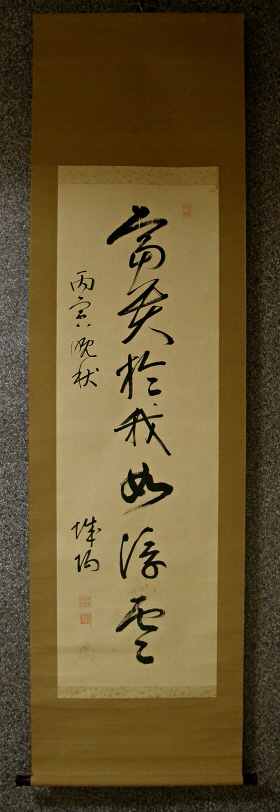 富貴於我如浮雲
丙寅晩秋
城陽